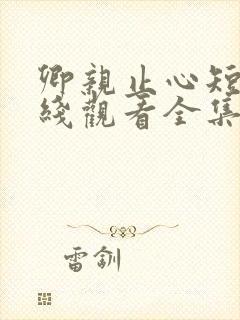 卿亲止心短
綫觀看全集
雷釗